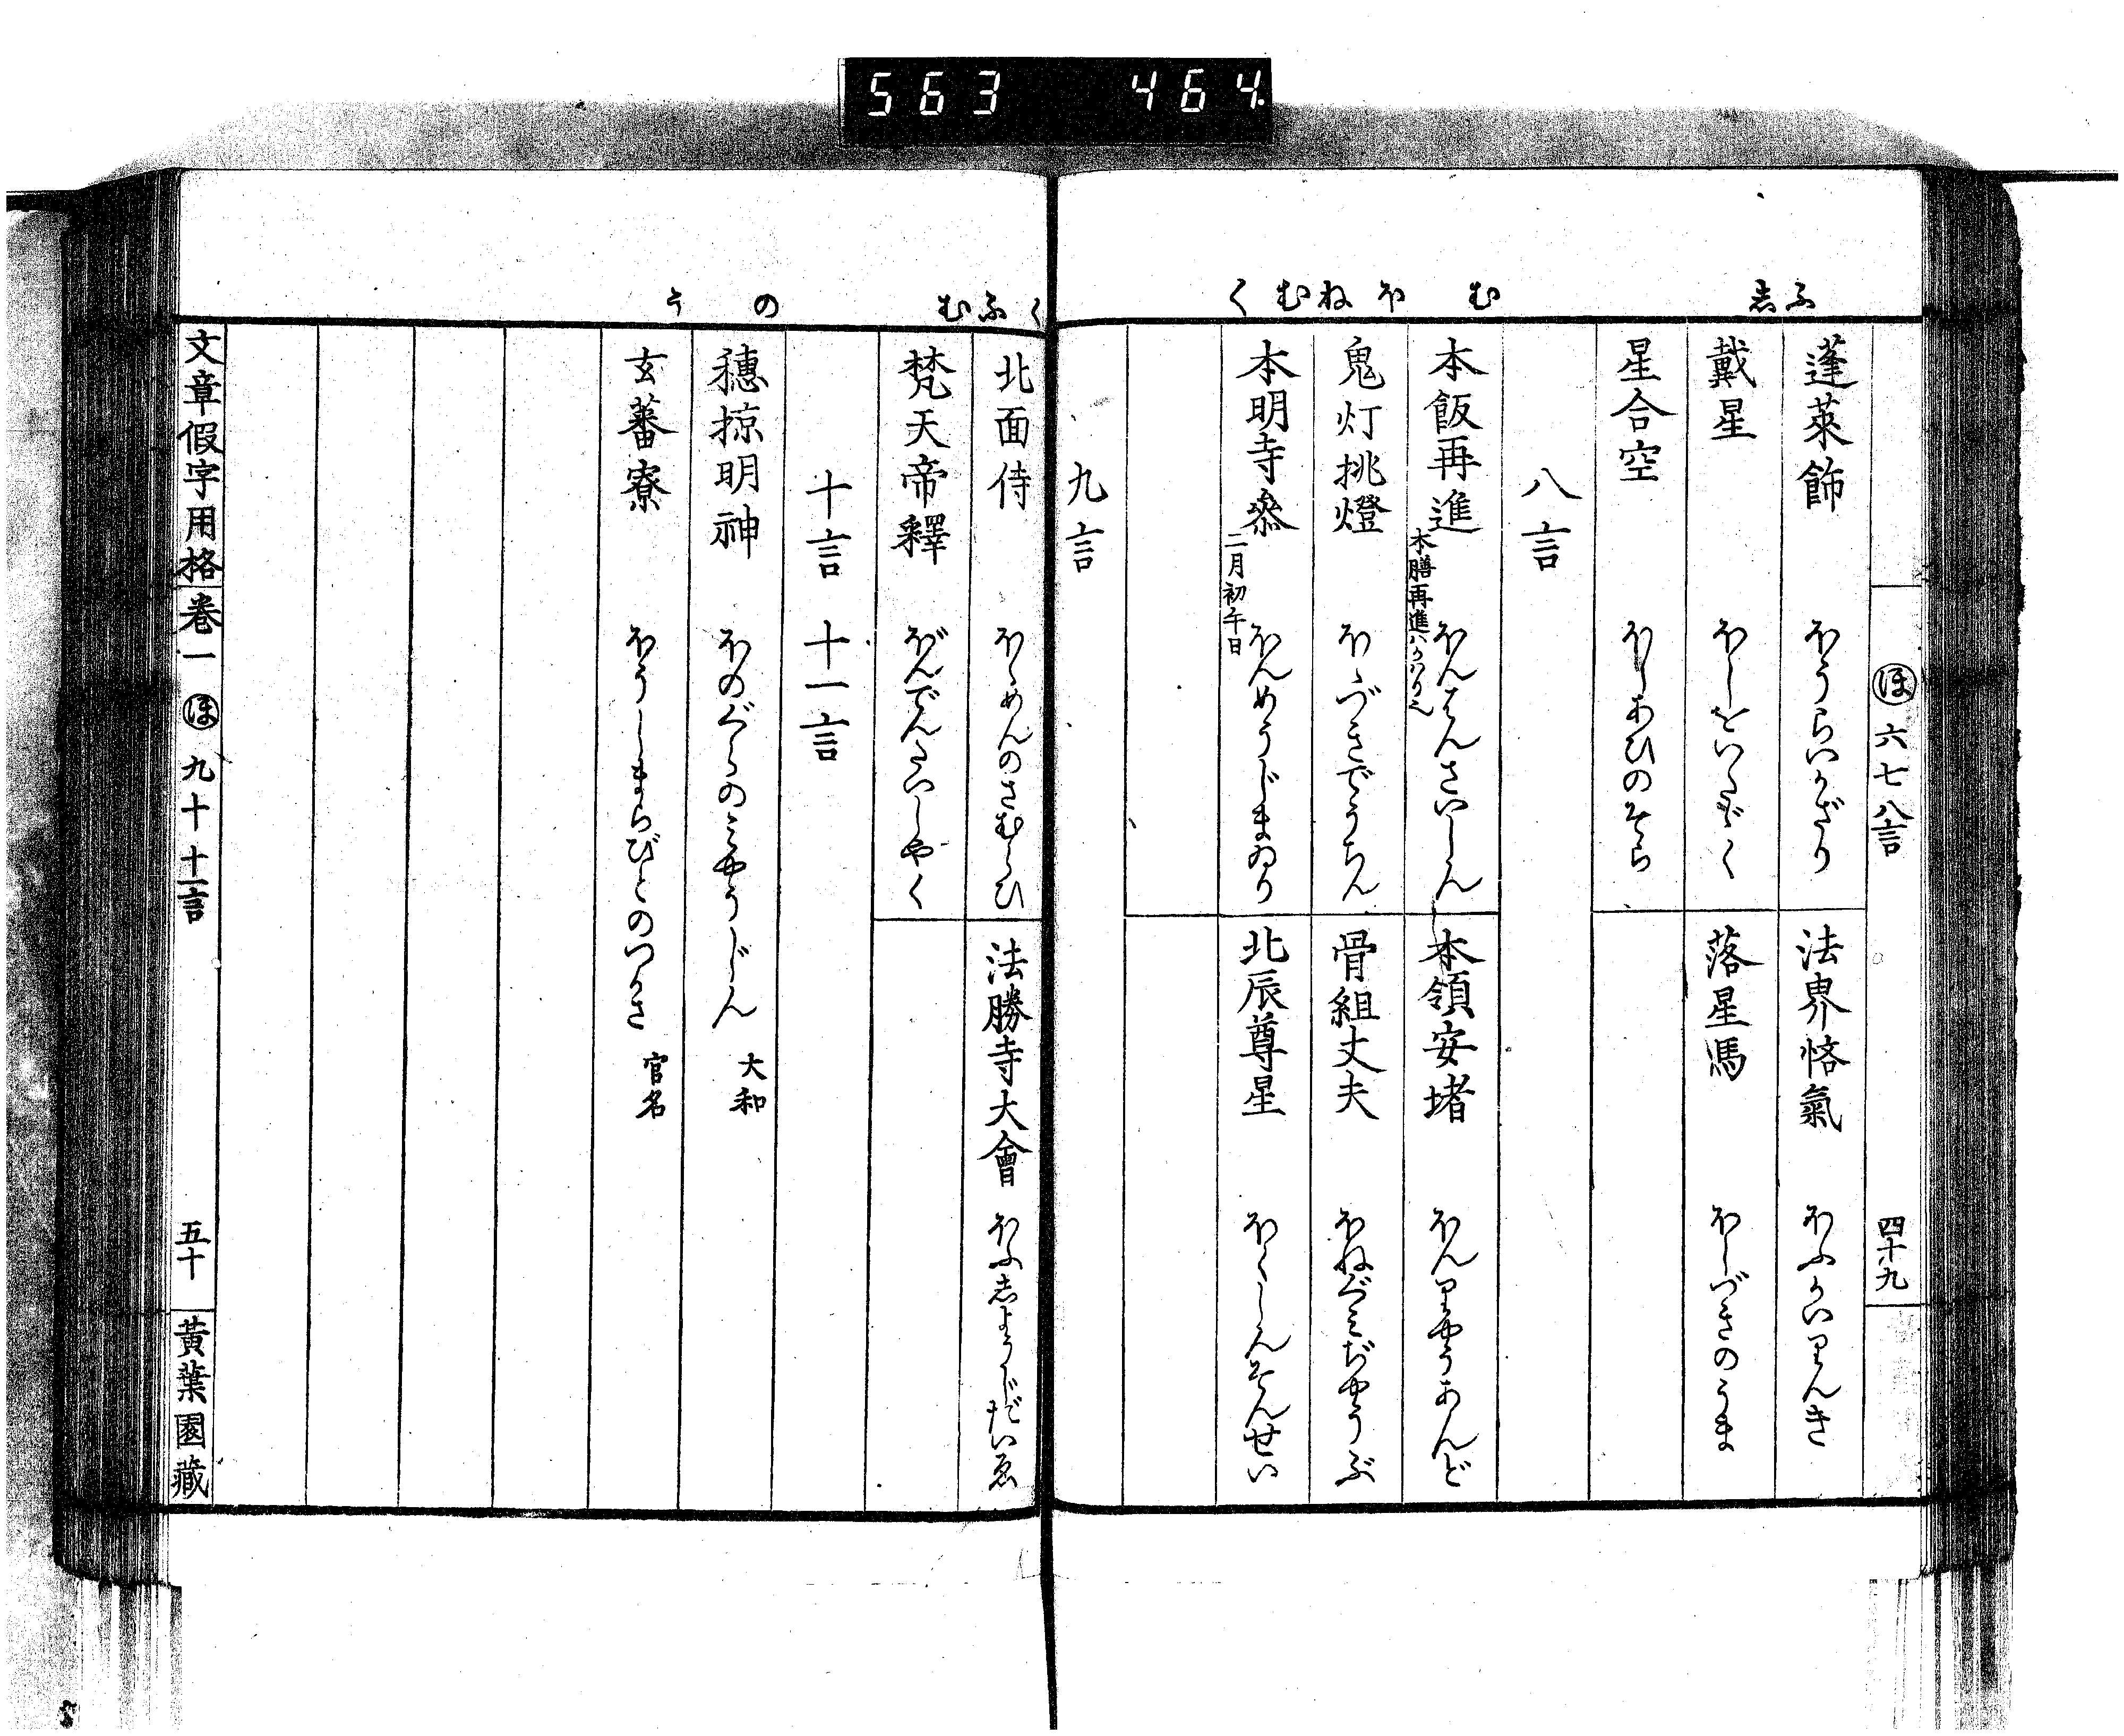 563 464
ふ し む ほ ね む く
ほ 六七八言 四十九
蓬萊飾 ほうらいかざり
法界悋氣 ほふかいりんき
戴星 ほしをいたゞく
落星馬 ほしづきのうま
星合空 ほしあひのそら
八言
本飯再進 ほんはんさいしん
本領安堵 ほんりやうあんど
鬼灯挑燈 ほゝづきでうちん
骨組丈夫 ほねぐみぢやうぶ
本明寺參 二月初午日 ほんめうじまゐり
北辰尊星 ほくしんそんせい
九言
く ふ む の う
北面侍 ほくめんのさむらひ
法勝寺大會 ほふしようじだいゑ
梵天帝釋 ぼんでんたいしやく
十言 十一言
穗掠明神 ほのぐらのみやうじん 大和
玄蕃寮 ほうしまらびとのつかさ 官名
文章假字用格 卷一 ほ 九十十一言 五十 黃葉園藏